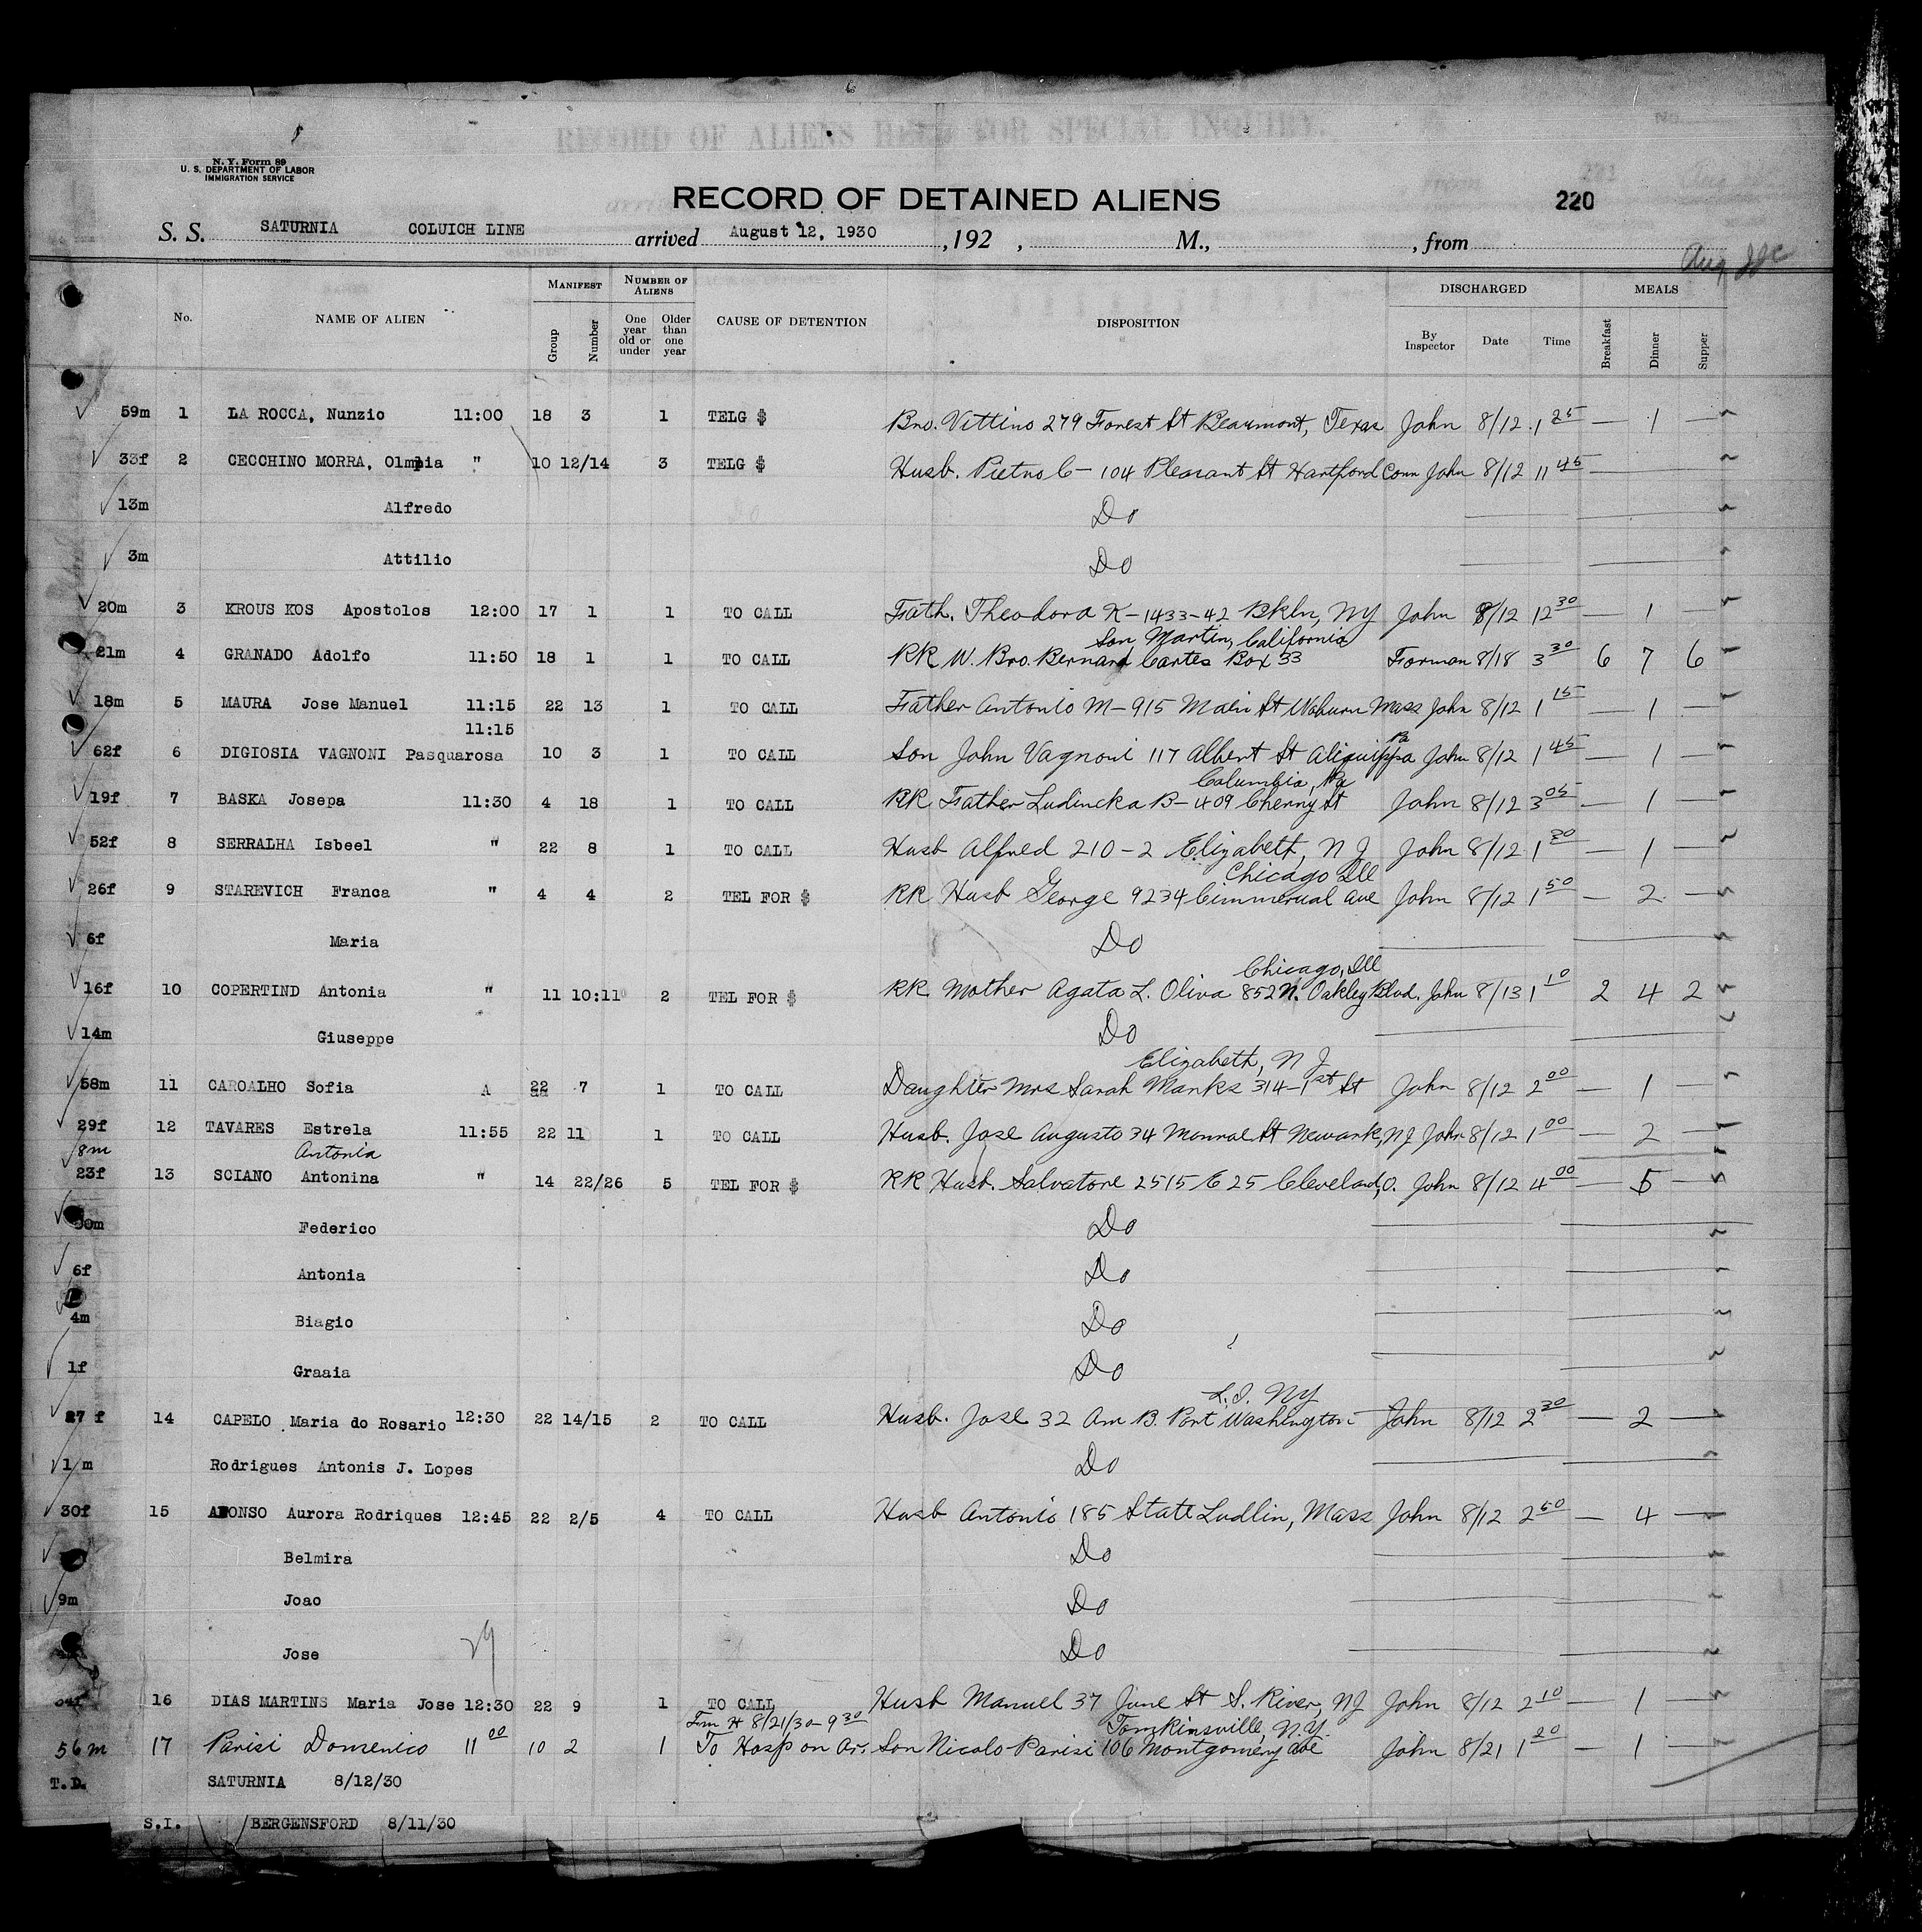 RECORD OF ALIENS HELD FOR SPECIAL INQUIRY.
N. Y. Form 89
U. S. DEPARTMENT OF LABOR
IMMIGRATION SERVICE
RECORD OF DETAINED ALIENS 220
S. S. SATURNIA COLUICH LINE arrived August 12, 1930 , 192 , M., , from
Aug
MANIFEST NUMBER OF ALIENS DISCHARGED MEALS
No. NAME OF ALIEN Group Number One year old or under Older than one year CAUSE OF DETENTION DISPOSITION By Inspector Date Time Breakfast Dinner Supper
59m 1 LA ROCCA, Nunzio 11:00 18 3 1 TELG $ Bro. Vittino 279 Forest St Beaumont, Texas John 8/12 1 25 — 1 —
33f 2 CECCHINO MORRA, Olmpia " 10 12/14 3 TELG $ Husb. Pietro C— 104 Pleasant St Hartford Conn John 8/12 11 45 —
13m Alfredo Do
3m Attilio Do
20m 3 KROUS KOS Apostolos 12:00 17 1 1 TO CALL Fath. Theodora K— 1433-42 Bkln, NY John 8/12 12 30 — 1 —
San Martin, California
21m 4 GRANADO Adolfo 11:50 18 1 1 TO CALL RR W. Bro. Bernard Cartes Box 33 Forman 8/18 3 30 6 7 6
18m 5 MAURA Jose Manuel 11:15 22 13 1 TO CALL Father Antonio M— 915 Main St Woburn Mass John 8/12 1 15 — 1 —
11:15
Pa
62f 6 DIGIOSIA VAGNONI Pasquarosa 10 3 1 TO CALL Son John Vagnoni 117 Albert St Aliquippa John 8/12 1 45 — 1 —
Columbia, Pa
19f 7 BASKA Josepa 11:30 4 18 1 TO CALL RR Father Ludincka B— 409 Cherry St John 8/12 3 05 — 1 —
52f 8 SERRALHA Isbeel " 22 8 1 TO CALL Husb Alfred 210-2 Elizabeth, N J John 8/12 1 20 — 1 —
Chicago Ill
26f 9 STAREVICH Franca " 4 4 2 TEL FOR $ RR Husb George 9234 Cimmerual Ave John 8/12 1 50 — 2 —
6f Maria Do
Chicago, Ill
16f 10 COPERTIND Antonia " 11 10:11 2 TEL FOR $ RR Mother Agata L. Oliva 852 N. Oakley Blvd. John 8/13 1 10 2 4 2
14m Giuseppe Do
Elizabeth, N J
58m 11 CAROALHO Sofia A 22 7 1 TO CALL Daughter Mrs Sarah Manks 314-1st St John 8/12 2 00 — 1 —
29f 12 TAVARES Estrela 11:55 22 11 1 TO CALL Husb. Jose Augusto 34 Monroe St Newark, NJ John 8/12 1 00 — 2 —
8m Antonia
23f 13 SCIANO Antonina " 14 22/26 5 TEL FOR $ RR Husb. Salvatore 2515 E 25 Cleveland, O. John 8/12 4 00 — 5 —
0m Federico Do
6f Antonia Do
4m Biagio Do
1f Graaia Do
L.I. NY
27 f 14 CAPELO Maria do Rosario 12:30 22 14/15 2 TO CALL Husb. Jose 32 Am B. Port Washington John 8/12 2 30 — 2 —
1 m Rodrigues Antonis J. Lopes Do
30f 15 AFONSO Aurora Rodriques 12:45 22 2/5 4 TO CALL Husb Antonio 185 State Ludlin, Mass John 8/12 2 50 — 4 —
Belmira Do
9m Joao Do
Jose 29 Do
34f 16 DIAS MARTINS Maria Jose 12:30 22 9 1 TO CALL Husb Manuel 37 June St S. River, NJ John 8/12 2 10 — 1 —
Frm H 8/21/30- 9 30 Tomkinsville, N.Y.
56m 17 Parisi Domenico 11 00 10 2 1 To Hosp on Ar. Son Nicolo Parisi 106 Montgomery Ave John 8/21 1 20 — 1 —
T.D. SATURNIA 8/12/30
S.I. BERGENSFORD 8/11/30